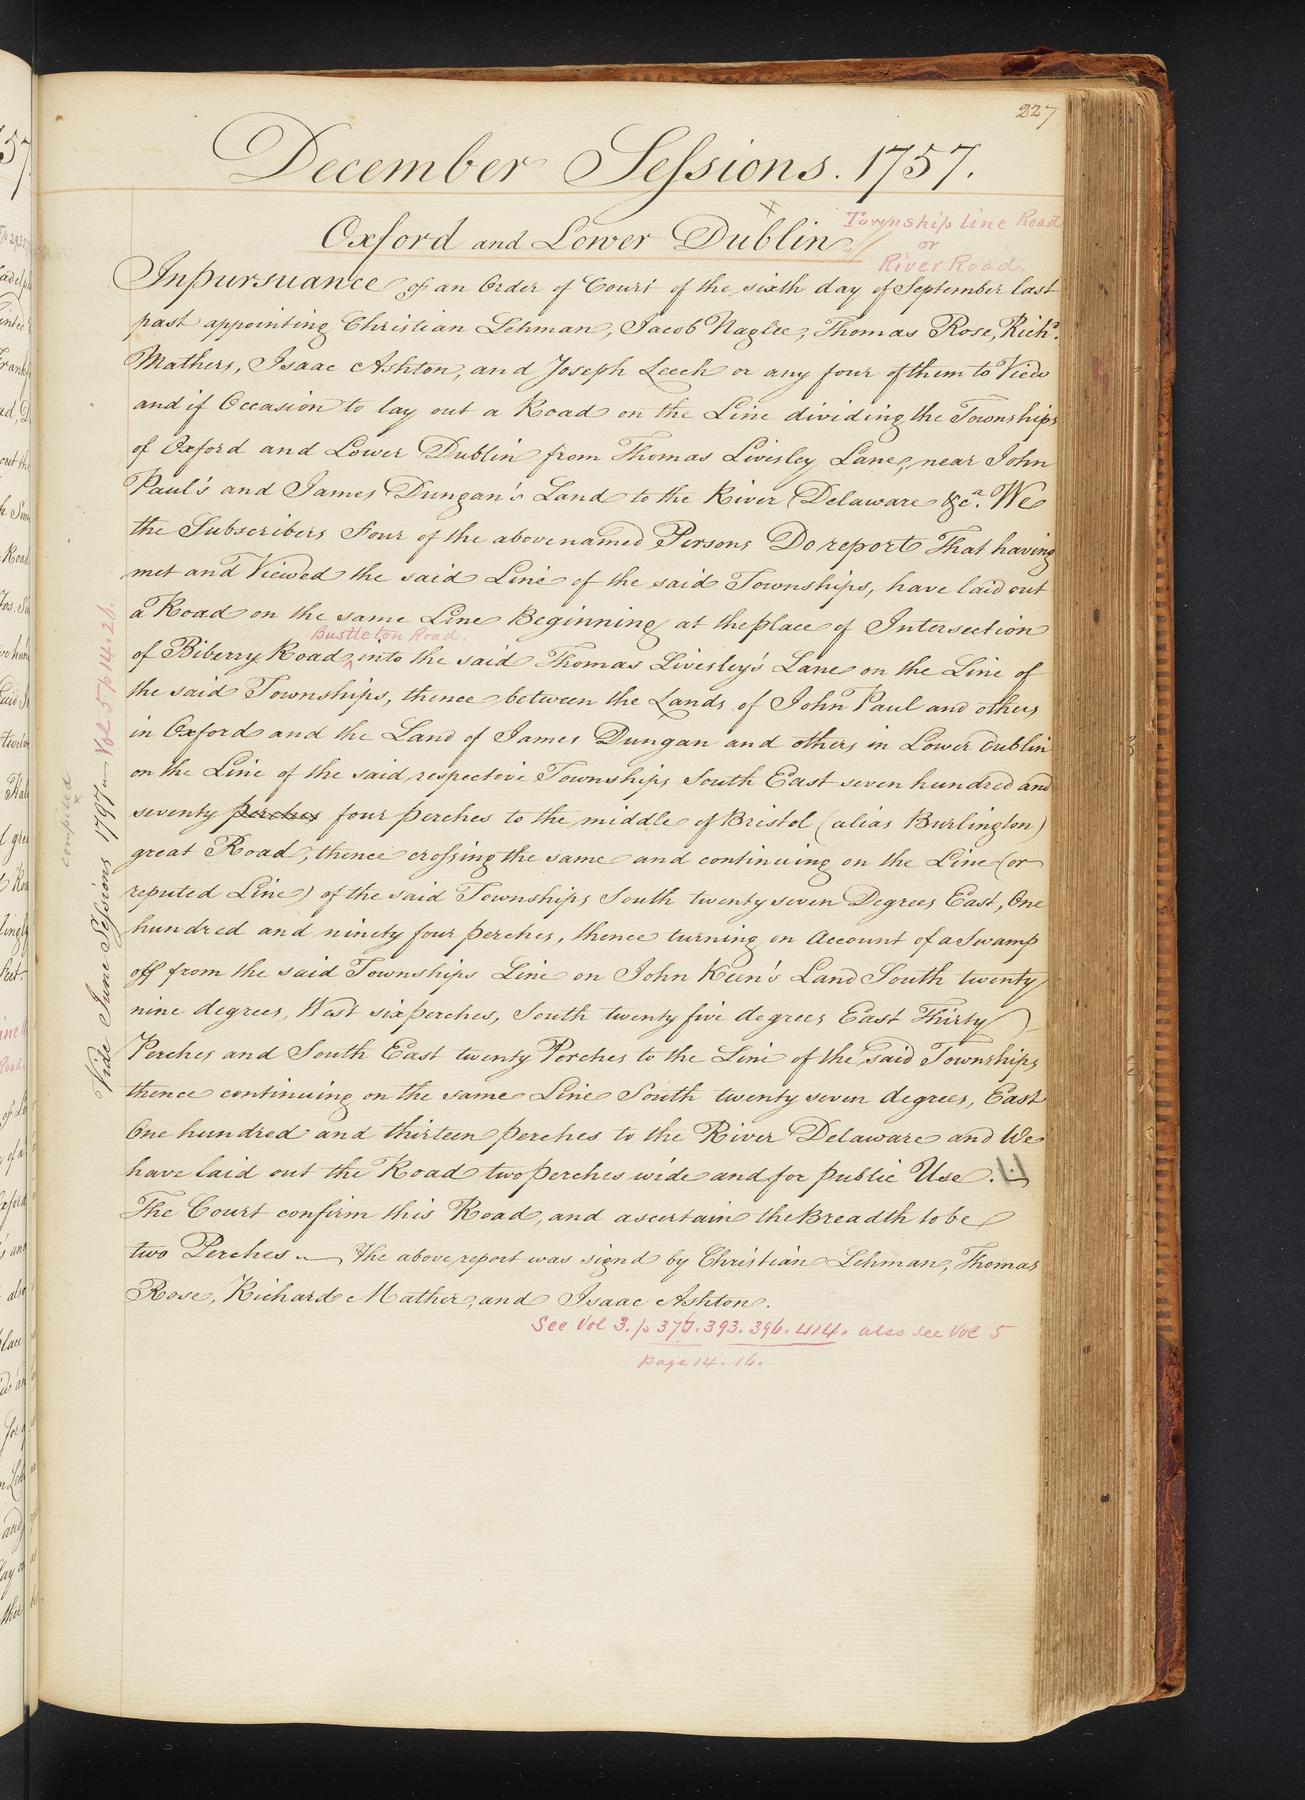 227
December Sessions. 1757.
Oxford and Lower Dublin
Township line Road
or
River Road.
In pursuance of an Order of Court of the sixth day of September last
past appointing Christian Lehman, Jacob Naglee, Thomas Rose, Richd.
Mathers, Isaac Ashton, and Joseph Leech or any four of them to View
and if Occasion to lay out a Road on the Line dividing the Townships
of Oxford and Lower Dublin from Thomas Livesley Lane, near John
Paul's and James Dungan's Land to the River Delaware &ca. We
the Subscribers Four of the abovenamed Persons Do report That having
met and Viewed the said Line of the said Townships, have laid out
a Road on the same Line Beginning at the place of Intersection
Bustleton Road.
of Biberry Road ^ into the said Thomas Livesley's Lane on the Line of
the said Townships, thence between the Lands of John Paul and others
in Oxford and the Land of James Dungan and others in Lower Dublin
on the Line of the said respective Townships South East seven hundred and
seventy perches four perches to the middle of Bristol (alias Burlington)
great Road, thence crossing the same and continuing on the Line (or
reputed Line) of the said Townships South twenty seven Degrees East, One
hundred and ninety four perches, thence turning on Account of a Swamp
off from the said Townships Line on John Keen's Land South twenty
nine degrees, West six perches, South twenty five degrees East Thirty
Perches and South East twenty Perches to the Line of the said Townships
thence continuing on the same Line South twenty seven degrees, East
One hundred and thirteen perches to the River Delaware and We
have laid out the Road two perches wide and for public Use.
The Court confirm this Road, and ascertain the Breadth to be
two Perches — The above report was signd by Christian Lehman, Thomas
Rose, Richard Mather, and Isaac Ashton.
See Vol 3. p 376. 393. 396. 414. also see Vol 5
page 14. 16.
Vide June Sessions 1797 — Vol 5 p 14. 26.
compiled